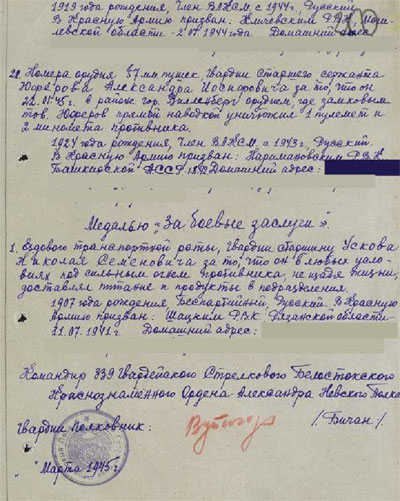 1919 года рождения, Член ВЛКСМ с 1944г., Русский
В Красную Армию призван: Кличевским РВК, Моги-
левской области - 2.07.1944 года Домашний адрес
20. Номера орудия 57 мм пушек Гвардии Старшего сержанта
Юферова Александра Иосифовича за то, что он
22.01.45г. в районе гор. Вилленберг орудием, где замковым
тов. Юферов прямой наводкой уничтожил 1 пулемет и
2 миномета противника.
1924 года рождения, Член ВЛКСМ, с 1943г., Русский.
В Красную Армию призван: Наримановским РВК
Башкирской АССР 1942 Домашний адрес:
Медалью „За боевые заслуги".
1. Ездового транспортной роты, Гвардии Старшину Ускова
Николая Семеновича за то, что он в любых усло-
виях под сильным огнем противника, не щадя жизни,
доставлял питание и продукты в подразделения.
1907 года рождения, Беспартийный, Русский. В Красную
Армию призван: Шацким РВК Рязанской области
21.07.1941г. Домашний адрес:
Командир 339 Гвардейского Стрелкового Белостокского
Краснознаменного Ордена Александра Невского Полка
Гвардии Полковник: /Бичан/
" " Марта 1945г